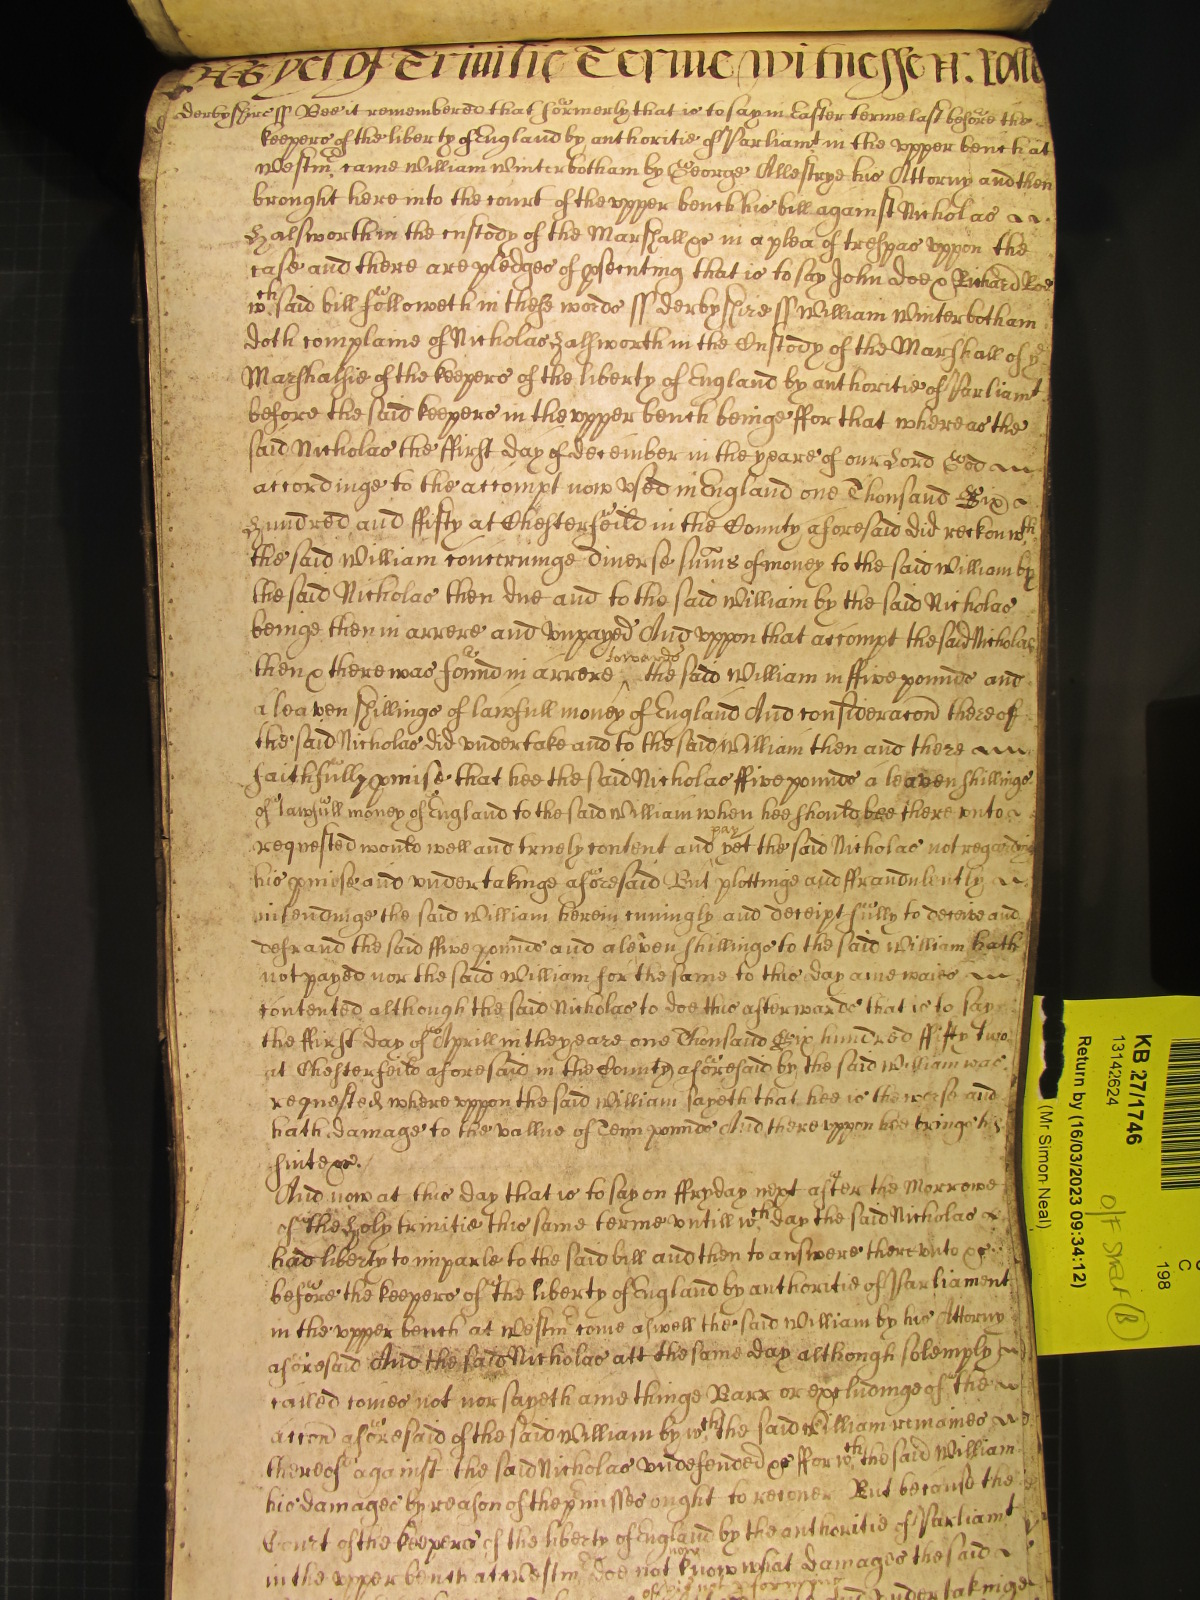 yet of Trinitie Terme witnesse H. Rolle
Derbyshire ss Bee it remembered that formerly that is to say in Easter terme last before the
keepers of the liberty of England by authoritie of Parliamt in the vpper bench at
Westmr came William Winterbotham by George Allestrye his Attorny and then
brought here into the court of the vpper bench his bill against Nicholas
Halsworth in the custody of the Marshall &c in a plea of trespas vppon the
case and there are pledges of psecuting that is to say John Doe & Richard Roe
wch said bill followeth in these words ss Derbyshire ss William Winterbotham
doth complaine of Nicholas Halsworth in the Custody of the Marshall of ye
Marshalsie of the keepers of the liberty of England by authoritie of Parliamt
before the said keepers in the vpper bench beinge ffor that whereas the
said Nicholas the ffirst day of December in the yeare of our Lord God
accordinge to the accompt now vsed in England one Thousand Six
Hundred and ffifty at Chesterfeild in the County aforesaid did reckon wth
the said William concerninge diuerse sums of money to the said William by
the said Nicholas then due and to the said William by the said Nicholas
beinge then in arrere and vnpayed And vppon that accompt the said Nicholas
then & there was found in arrere towards the said William in ffive pounds and
a leaven shillings of lawfull money of England And consideracon thereof
the said Nicholas did vndertake and to the said William then and there
faithfully pmise that hee the said Nicholas ffive pounds a leaven shillings
of lawfull money of England to the said William when hee should bee there vnto
requested would well and truely content and pay yet the said Nicholas not regarding
his pmise and vndertakinge aforesaid But plottinge and ffraudulently
intendinge the said William herein cuningly and deceiptfully to deceive and
defraud the said ffive pounds and a leven shillings to the said William hath
not payed nor the said William for the same to this day anie waies
contented although the said Nicholas to doe this afterwards that is to say
the ffirst day of Aprill in the yeare one Thousand Six hundred ffifty two
at Chesterfeild aforesaid in the County aforesaid by the said William was
requested where vppon the said William sayeth that hee is the worse and
hath damage to the vallue of Tenn pounds And there vppon hee brings his
suite &c.
And now at this day that is to say on ffryday next after the Morrowe
of the Holy trinitie this same terme vntill wch day the said Nicholas
had liberty to imparle to the said bill and then to answere therevnto &c
before the keepers of the liberty of England by authoritie of Parliament
in the vpper bench at Westmr come aswell the said William by his Attorny
aforesaid And the said Nicholas att the same day although solemply
called comes not nor sayeth anie thinge Barr or excludinge of the
accon aforesaid of the said William by wch the said William remaines
thereof against the said Nicholas vndefended &c ffor wch the said William
his damages by reason of the pmisses ought to recouer But because the
Court of the keepers of the liberty of England by the authoritie of Parliamt
in the vpper bench at Westmr doe not know what damages the said
and vndertakinge
KB 27/1746
13142624
Return by (16/03/2023 09:34:12)
(Mr Simon Neal)
C
198